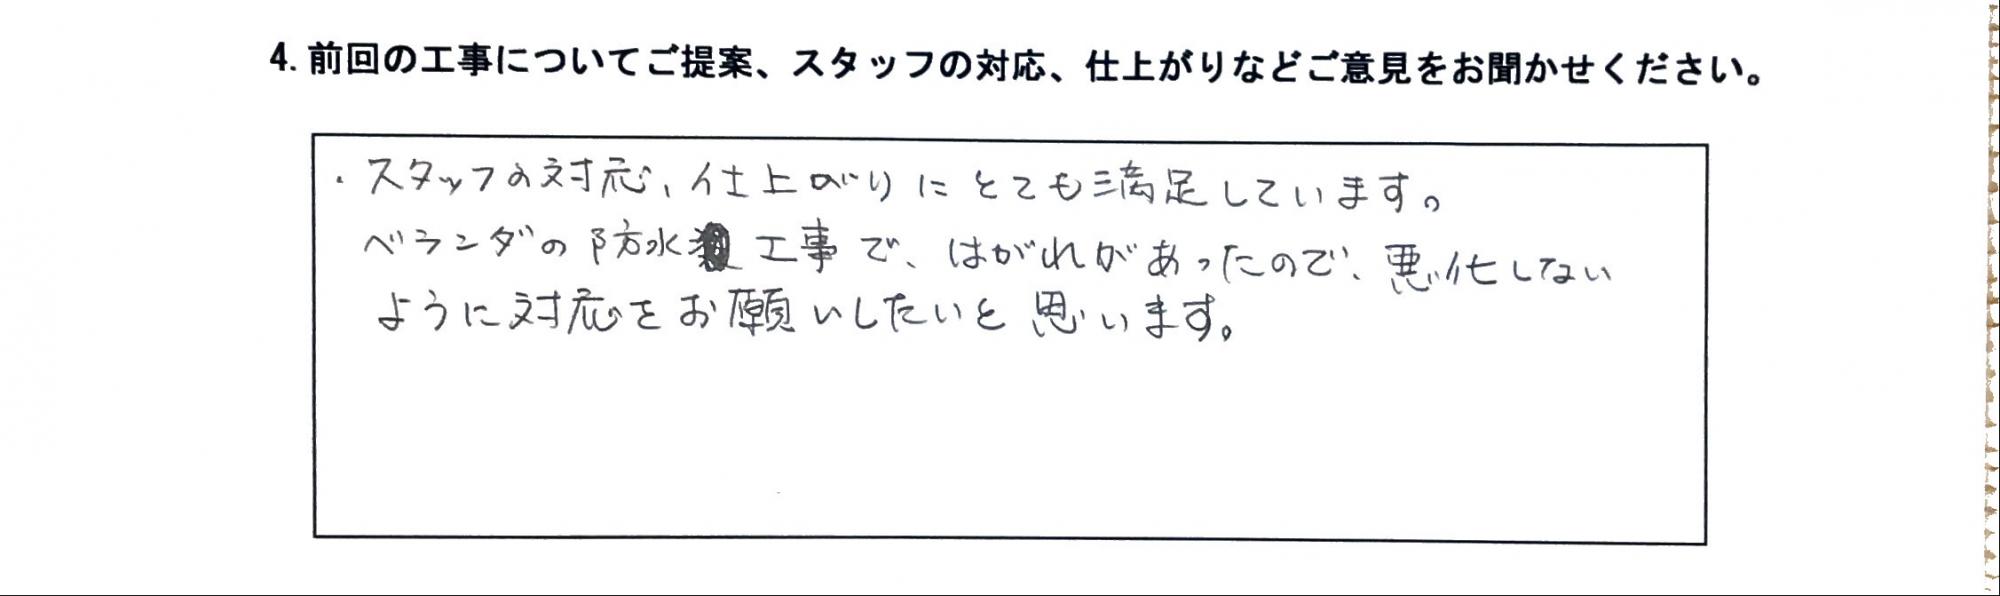 4. 前回の工事についてご提案、スタッフの対応、仕上がりなどご意見をお聞かせください。
・スタッフの対応、仕上がりにとても満足しています。
ベランダの防水工事で、はがれがあったので、悪化しない
ように対応をお願いしたいと思います。